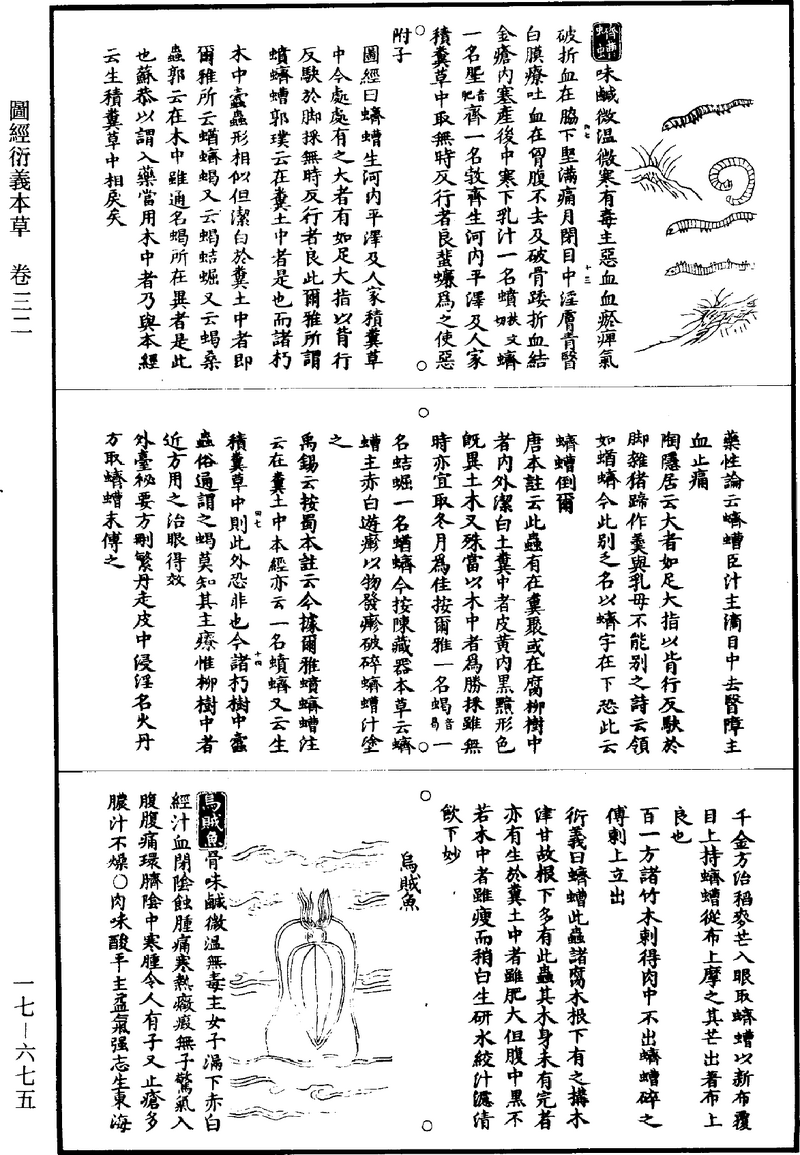 圖經衍義本草　卷三二
一七—六七五
蠐螬味鹹微溫微寒有毒主惡血血瘀痹氣
破折血在脇下堅滿痛月閉目中淫膚青瞖
白膜療吐血在胷腹不去及破骨踒折血結
金瘡內塞產後中寒下乳汁一名蟦扶文切蠐
一名𧔥音肥齊一名敦齊生河內平澤及人家
積糞草中取無時反行者良蜚蠊爲之使惡
附子
圖經曰蠐螬生河內平澤及人家積糞草
中今處處有之大者有如足大指以背行
反駃於脚採無時反行者良此爾雅所謂
蟦蠐螬郭璞云在糞土中者是也而諸朽
木中蠹蟲形相似但潔白於糞土中者即
爾雅所云蝤蠐蝎又云蝎蛣𧌑又云蝎桑
蟲郭云在木中雖通名蝎所在異者是此
也蘇恭以謂入藥當用木中者乃與本經
云生積糞草中相戾矣
藥性論云蠐螬臣汁主滴目中去瞖障主
血止痛
陶隱居云大者如足大指以背行反駃於
脚雜猪蹄作羹與乳母不能別之詩云領
如蝤蠐今此別之名以蠐字在下恐此云
蠐螬倒爾
唐本註云此蟲有在糞聚或在腐柳樹中
者內外潔白土糞中者皮黃內黑黯形色
既異土木又殊當以木中者爲勝採雖無
時亦宜取冬月爲佳按爾雅一名蝎音曷一
名蛣𧌑一名蝤蠐今按陳藏器本草云蠐
螬主赤白遊𤺋以物發𤺋破碎蠐螬汁塗
之
禹錫云按蜀本註云今據爾雅蟦蠐螬注
云在糞土中本經亦云一名蟦蠐又云生
積糞草中則此外恐非也今諸朽樹中蠹
蟲俗通謂之蝎莫知其主療惟柳樹中者
近方用之治眼得效
外臺秘要方刪繁丹走皮中浸淫名火丹
方取蠐螬末傅之
千金方治稻麥芒入眼取蠐螬以新布覆
目上持蠐螬從布上摩之其芒出著布上
良也
百一方諸竹木刺得肉中不出蠐螬碎之
傅刺上立出
衍義曰蠐螬此蟲諸腐木根下有之搆木
津甘故根下多有此蟲其木身未有完者
亦有生於糞土中者雖肥大但腹中黑不
若木中者雖瘦而稍白生研水絞汁濾清
飲下妙
烏賊魚
烏賊魚骨味鹹微溫無毒主女子漏下赤白
經汁血閉陰蝕腫痛寒熱癥瘕無子驚氣入
腹腹痛環臍陰中寒腫令人有子又止瘡多
膿汁不燥〇肉味酸平主益氣强志生東海